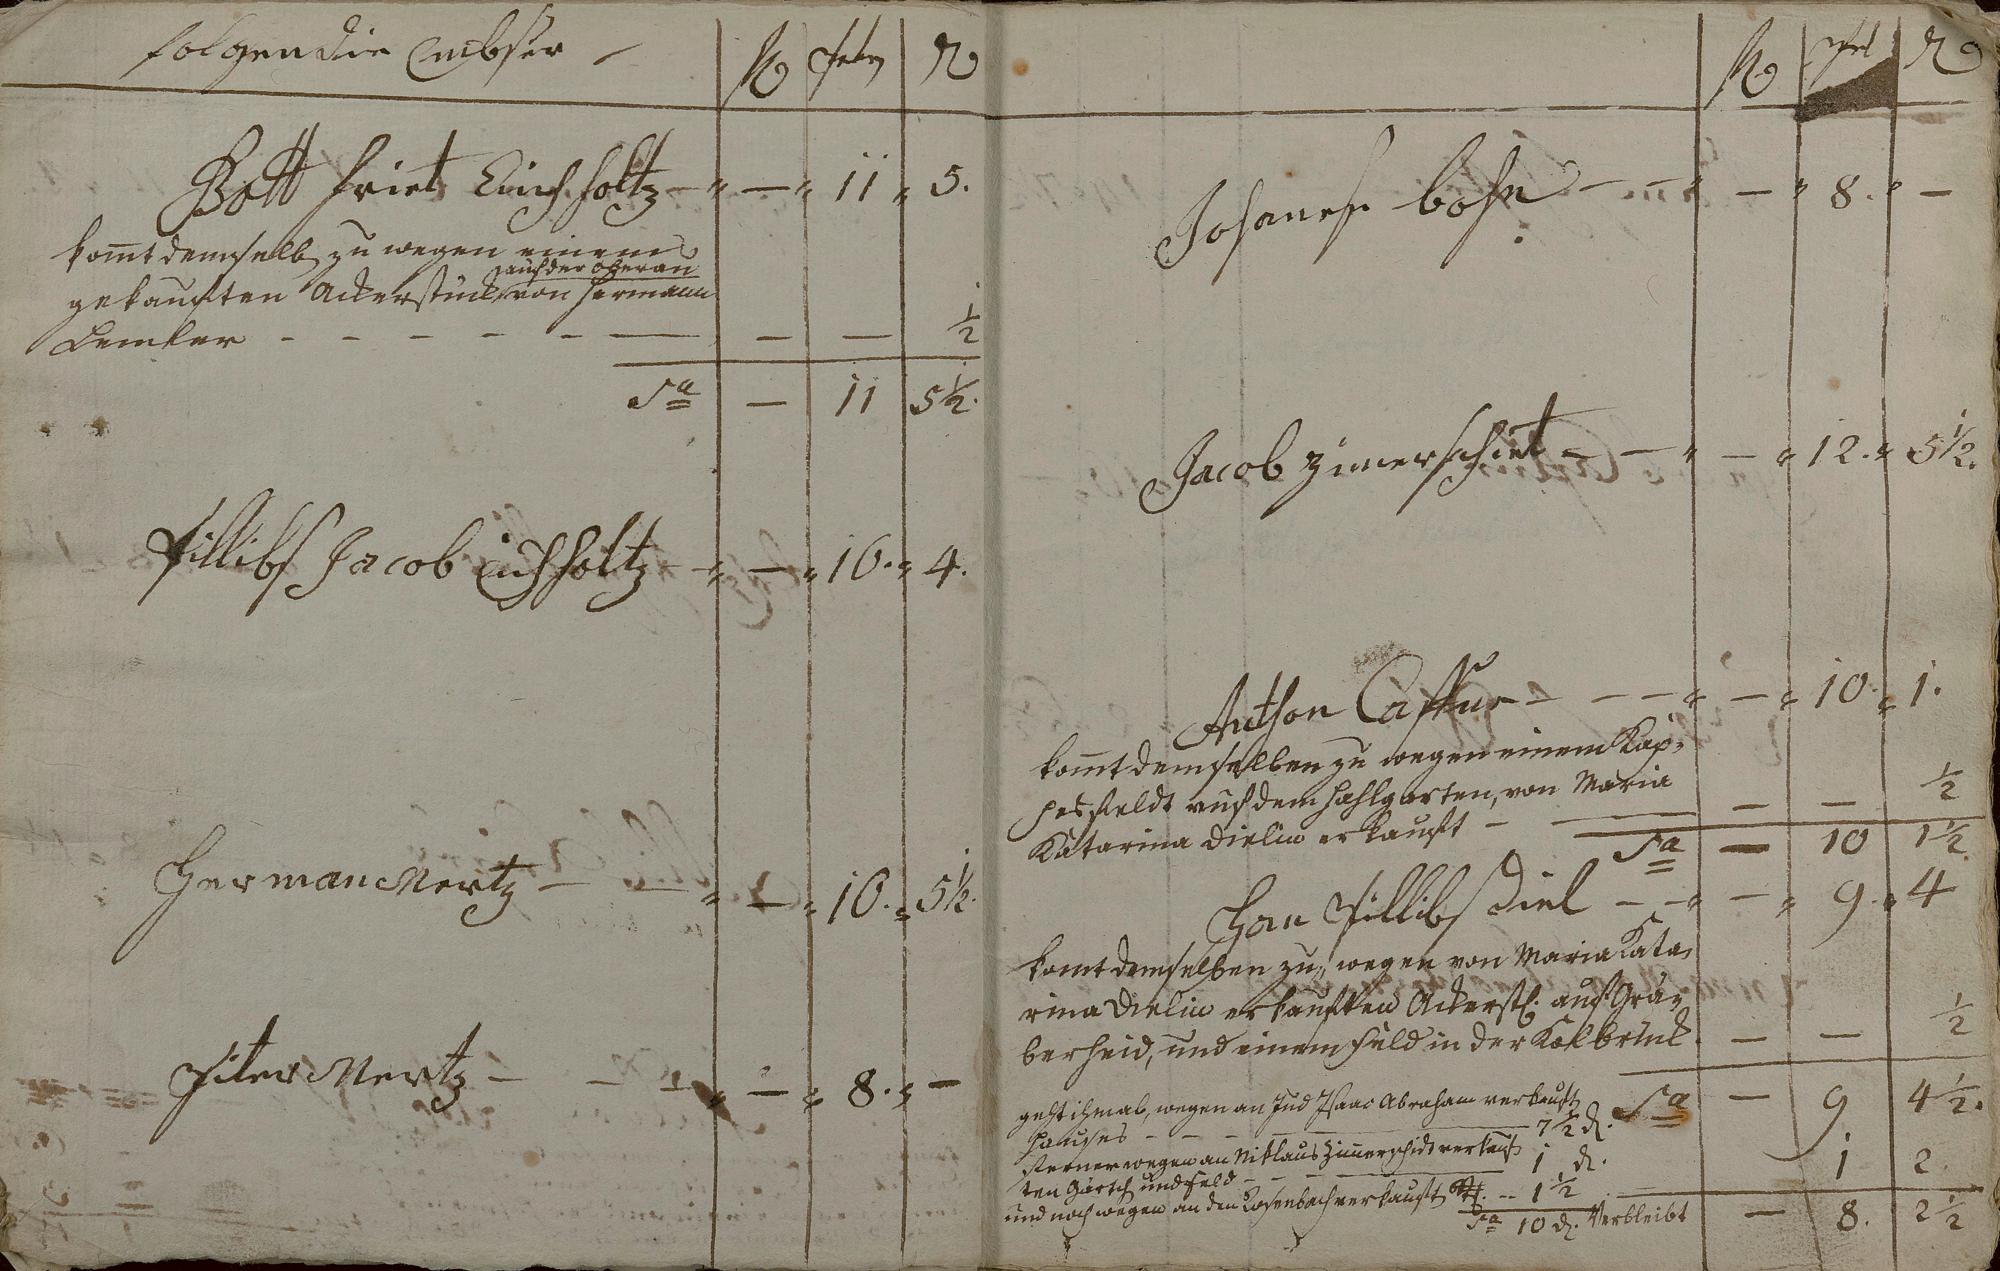 folgen die Embser
fl Peten d
Gott friet Eichholtz — " — " 11 " 5.
kom̄t demselb zu wegen einem
auf der oberau
gekauften Ackerstück von Hermann
Lemler — — — ½
Sa — 11 5½.
Pillibs Jacob Eichholtz — " — " 10. " 4.
Herman Mertz — — " — " 10. " 5½.
Piter Mertz — — " — " 8. " —
fl Pet d
Johanes bohn — — " — " 8. " —
Jacob zimerschiet — — " — " 12. " 5½.
Anthon Cassur — — — " — " 10. " 1.
kom̄t demselben zu wegen einem Kap-
pesfeldt auf dem Hahlgarten, von Maria
Katarina Dielin erkauft — — — ½
Sa — 10 1½.
Han Pillibs Diel — — " — " 9. " 4
komt demselben zu, wegen von Maria Kata-
rina Dielin erkauften Ackerst. auf Grä-
berheid, und einem Feld in der Kolbruck. — — ½
Sa — 9 4½.
geht ihm ab, wegen an Jud Isaac Abraham verkauft
Hauses — — — 7½ d.
ferner wegen an Niklaus Zimerschidt verkauf-
ten Gärtch und Feld — — — 1 d.
1 2.
und noch wegen an den Rosenbach verkauft — 1½
Sa 10 d. Verbleibt — 8. 2½